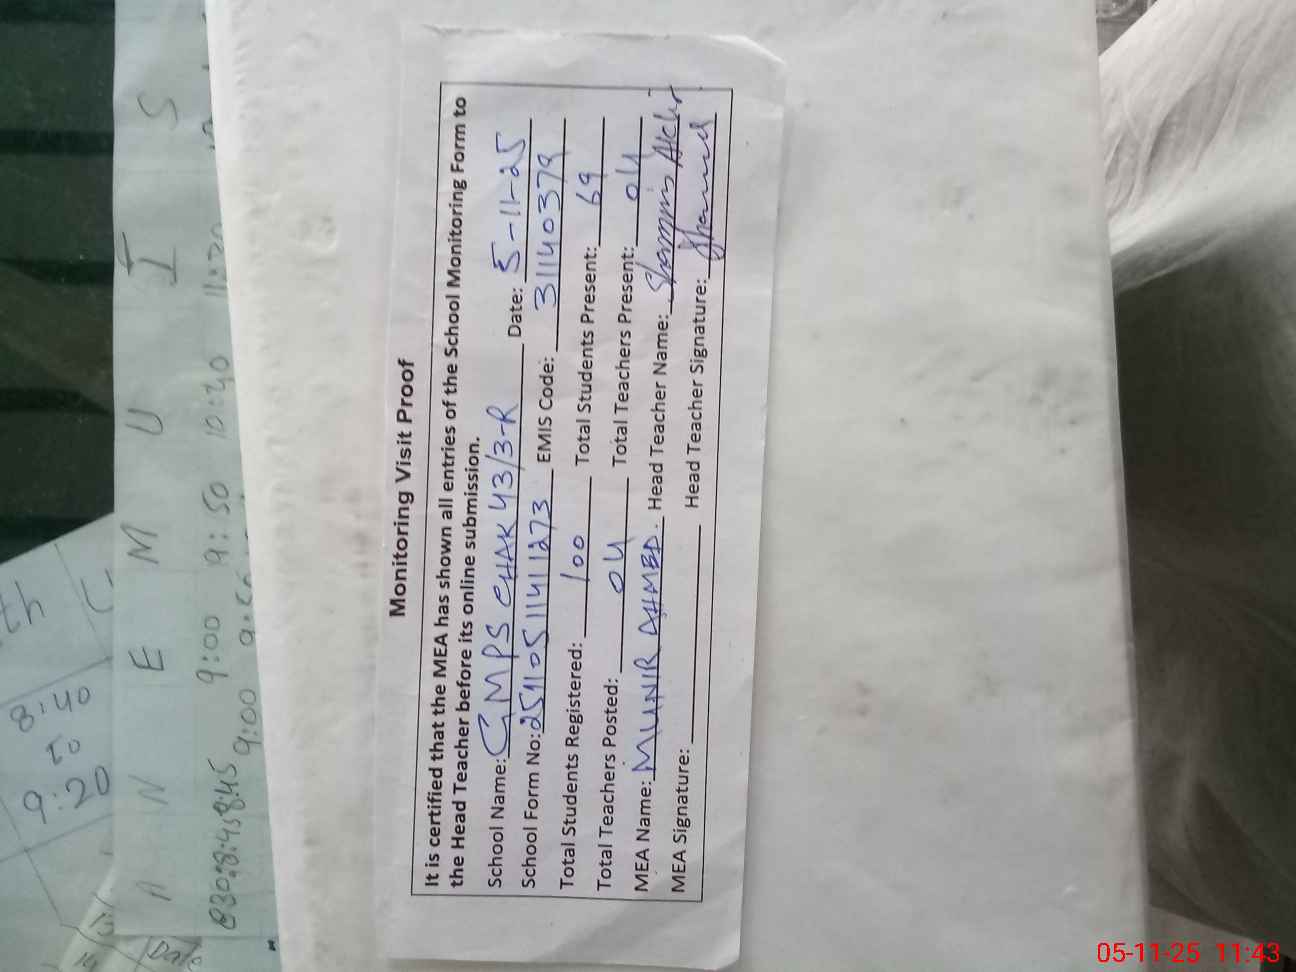 Monitoring Visit Proof
It is certified that the MEA has shown all entries of the School Monitoring Form to
the Head Teacher before its online submission.
School Name: GMPS CHAK 43/3-R Date: 5-11-25
School Form No: EMIS Code: 31140379
Total Students Registered: 100 Total Students Present: 69
Total Teachers Posted: 04 Total Teachers Present: 04
MEA Name: MUNIR AHMED. Head Teacher Name: Shamim Akhtr
MEA Signature: Head Teacher Signature:
A N E M U I S
9:00 9:50 10:40 11:20
9:00
8:40
to
9:20
th
Date
05-11-25 11:43